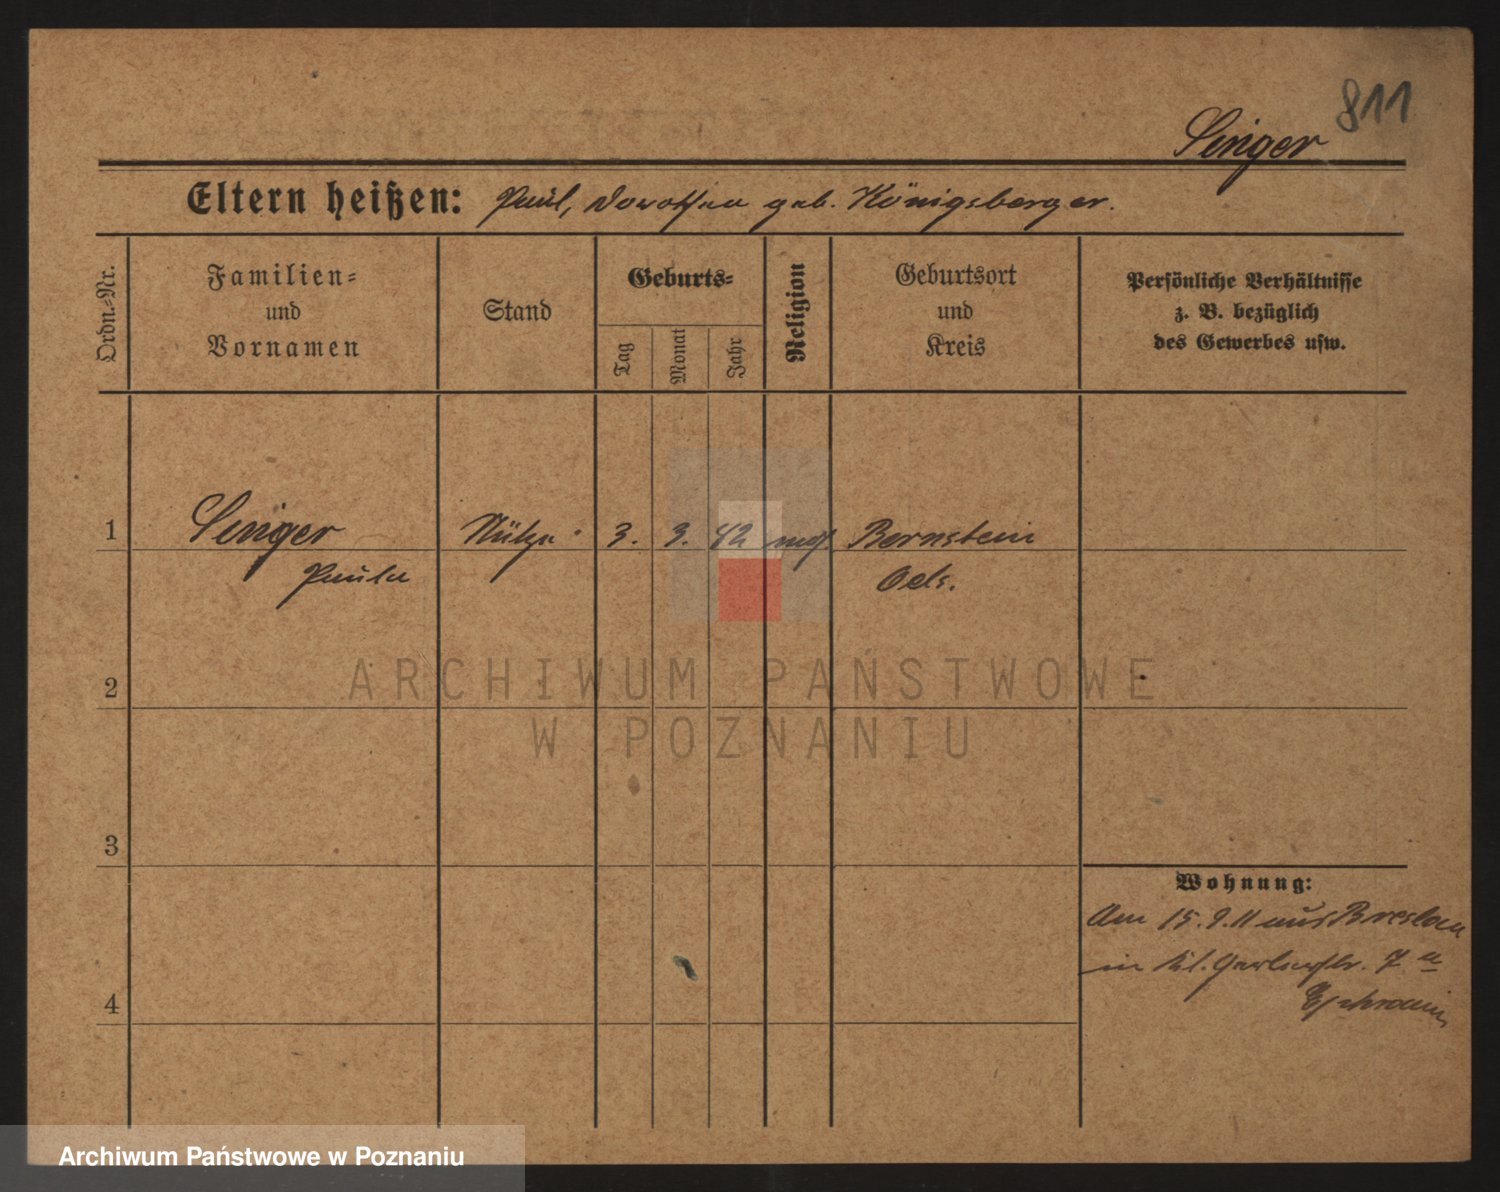 811
Singer
Eltern heißen: Paul, Dorothea geb. Königsberger.
Ordn.=Nr.
Familien=
und
Vornamen
Stand
Geburts=
Tag
Monat
Jahr
Religion
Geburtsort
und
Kreis
Persönliche Verhältnisse
z. B. bezüglich
des Gewerbes usw.
1 Singer 3. 3. 42 Bernstein
Paula Oels.
2
ARCHIWUM PAŃSTWOWE
W POZNANIU
3
Wohnung:
Am 15.9.11 aus Breslau
in Kl. 7
4
Archiwum Państwowe w Poznaniu